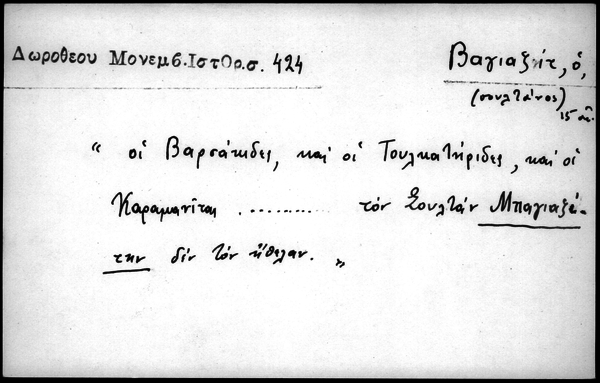 Δωροθεου Μονεμβ. Ιστορ. σ. 424
Βαγιαζήτ, ὁ,
(σουλτάνος)
15 αἰ.
“ οἱ Βαρσάκιδες, καὶ οἱ Τουλκατήριδες, καὶ οἱ
Καραμανῖται ............ τὸν Σουλτὰν Μπαγιαζέ-
την δὲν τὸν ἤθελαν. „